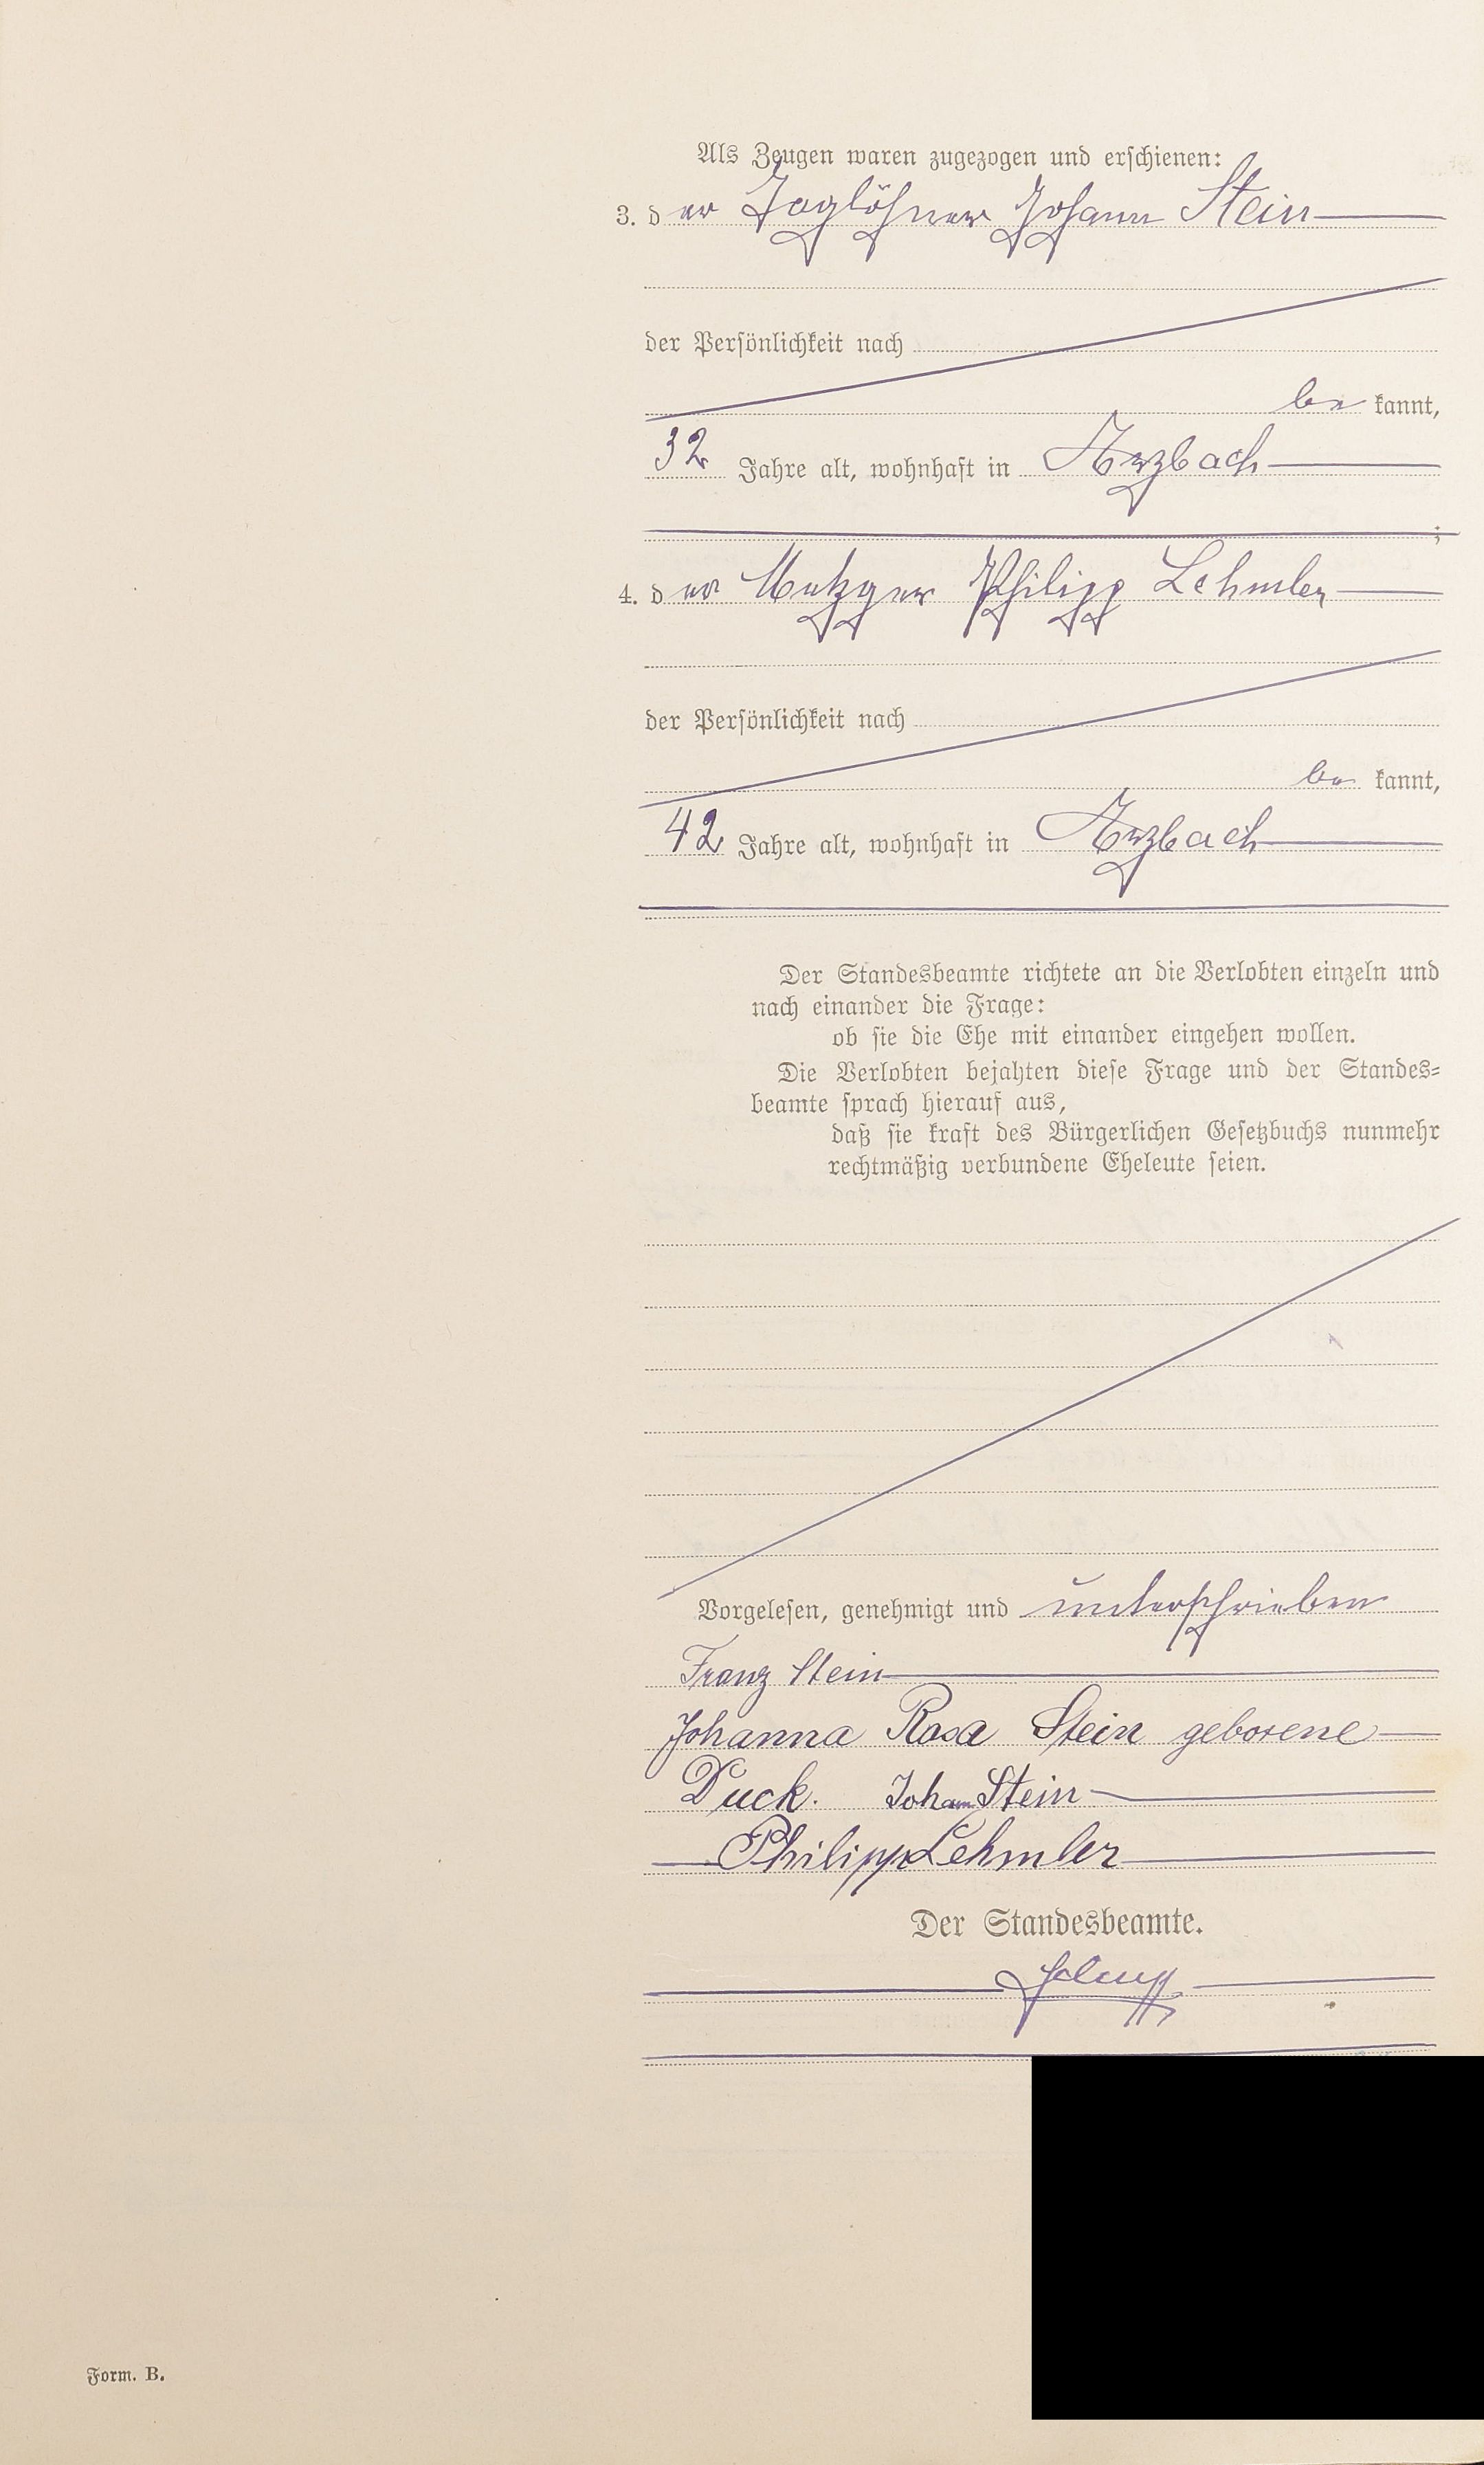 Als Zeugen waren zugezogen und erschienen:
3. der Taglöhner Johann Stein
der Persönlichkeit nach
be kannt,
32 Jahre alt, wohnhaft in Arzbach
;
4. der Metzger Philipp Lehmler
der Persönlichkeit nach
be kannt,
42 Jahre alt, wohnhaft in Arzbach
Der Standesbeamte richtete an die Verlobten einzeln und
nach einander die Frage:
ob sie die Ehe mit einander eingehen wollen.
Die Verlobten bejahten diese Frage und der Standes=
beamte sprach hierauf aus,
daß sie kraft des Bürgerlichen Gesetzbuchs nunmehr
rechtmäßig verbundene Eheleute seien.
Vorgelesen, genehmigt und unterschrieben
Franz Stein
Johanna Rosa Stein geborene
Duck. Johann Stein
Philipp Lehmler
Der Standesbeamte.
Form. B.